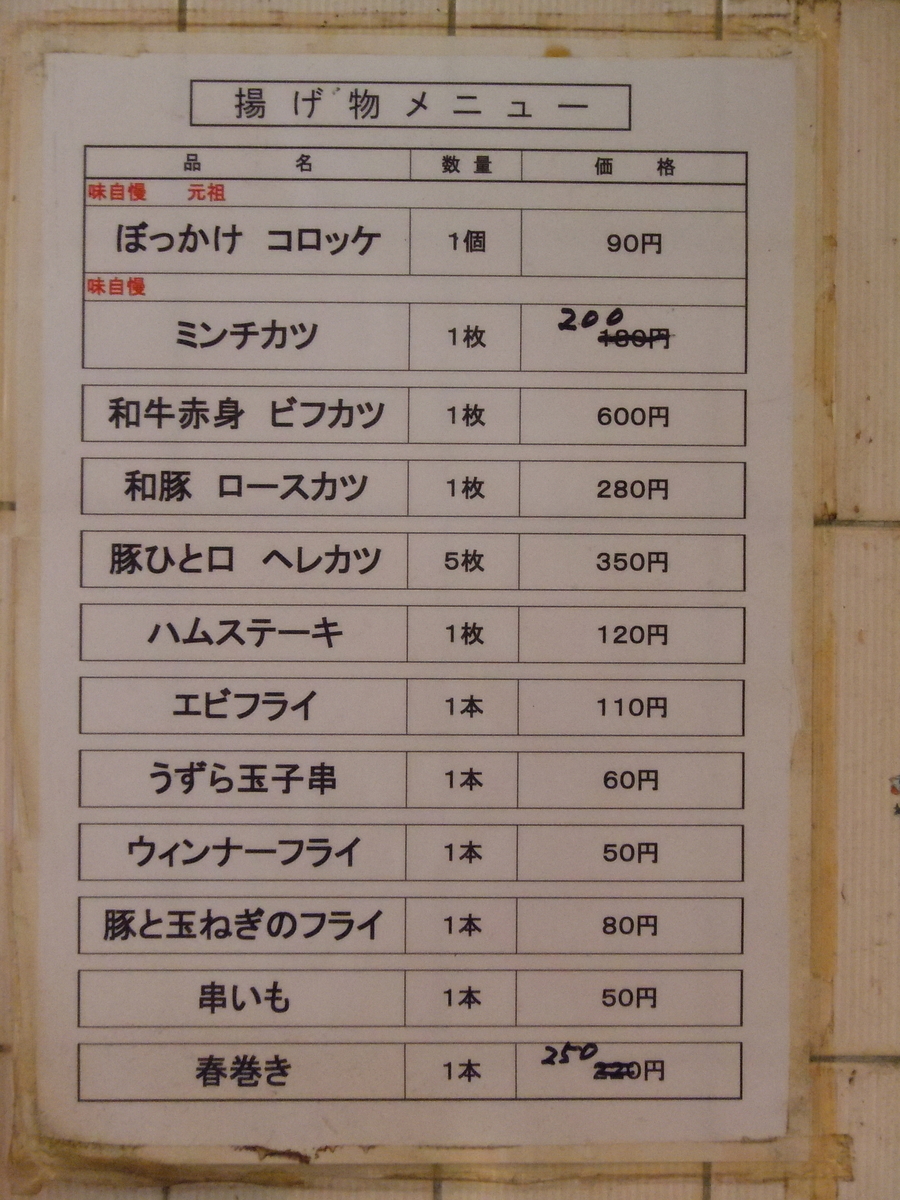 揚げ物メニュー
品名 数量 価格
味自慢 元祖
ぼっかけ コロッケ 1個 90円
味自慢
ミンチカツ 1枚 200 180円
和牛赤身 ビフカツ 1枚 600円
和豚 ロースカツ 1枚 280円
豚ひと口 ヘレカツ 5枚 350円
ハムステーキ 1枚 120円
エビフライ 1本 110円
うずら玉子串 1本 60円
ウィンナーフライ 1本 50円
豚と玉ねぎのフライ 1本 80円
串いも 1本 50円
春巻き 1本 250 220円